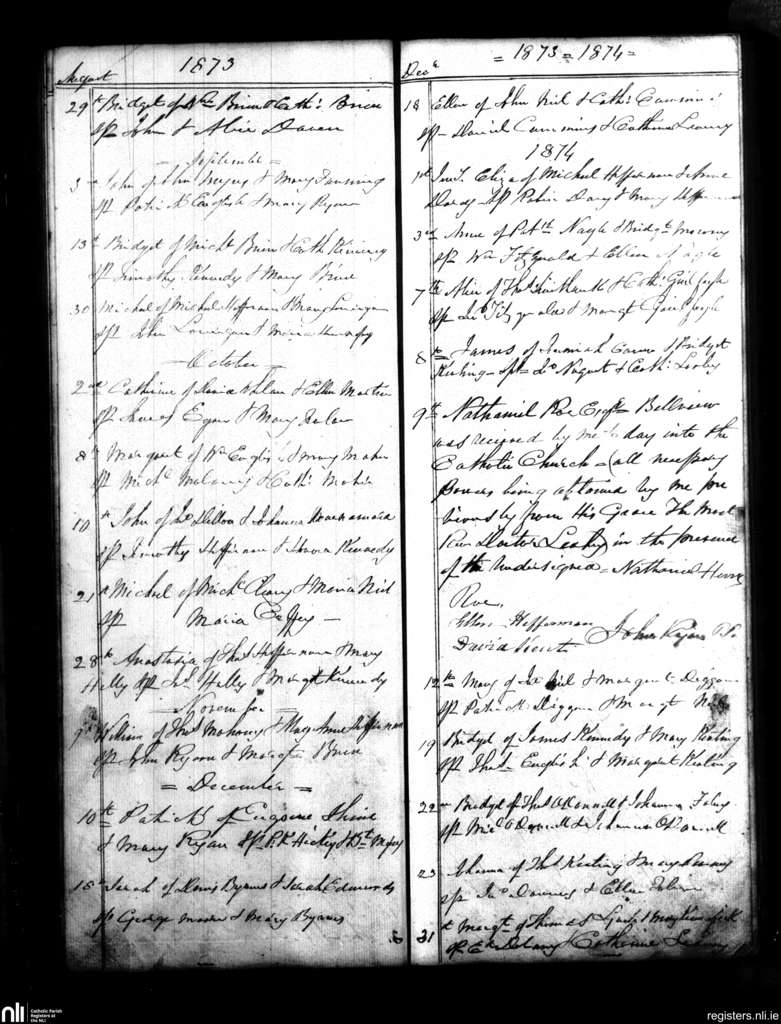 1873
August
29th Bridget of Wm Brien & Cath: Brien
Sp John & Alice Dwen
- September =
3 John of John Meyers & Mary Fanning
Sp Patrick English & Mary Ryan
13th Bridget of Michl Brien & Cath Kennedy
Sp Timothy Kennedy & Mary Brien
30 Michael of Michael Heffernan & Mary Lonergan
Sp John Lonergan & Maria
- October -
2nd Catherine of David Whelan & Ellen Martin
Sp James Egan & Mary
8th Margaret of Wm English & Mary Maher
Sp Michl Moloney & Cath: Maher
10th John of Jno Dillon & Johanna
Sp Timothy Heffernan & Hanora Kennedy
21 Michael of Michl Cleary & Maria Neil
Sp Maria Caffey -
28th Anastasia of Thos Heffernan & Mary
Helly Sp Jno Helly & Margt Kennedy
- November =
9th William of Thos Mahony & Mary Anne Heffernan
Sp John Ryan & Margt Brien
= December =
10th Patrick of Eugene Shine
& Mary Ryan Sp P.k Hickey & Bt Mejor
15 Sarah of Denis Byrnes & Sarah Edmonds
Sp George Moore & Mary Byrnes
= 1873 = 1874 =
Decr
18 Ellen of John Neil & Cath: Cummins
Sp - Daniel Cummins & Catherine Leamy
1874
1st Eliza of Michael Heffernan & Anne
Darcy - Sp Peter Darcy & Mary Heffernan
3rd Anne of Patk Nagle & Bridgt
Sp Wm Fitzgerald & Ellen Nagle
7th Alice of Thos & Cath: Guilfoyle
Sp Jno Fitzgerald & Margt Guilfoyle
8th James of Jeremiah & Bridget
Keating - Sp Jno Nugent & Cath:
9th Nathaniel Roe Esqre Bellview
was received by me to day into the
Catholic Church = (all necessary
Powers being obtained by me pre
viously from His Grace The Most
Revd Doctor Leahy) in the presence
of the Undersigned = Nathaniel
Roe.
Ellen Heffernan
John Ryan P.P.
David
12th Mary of Jno Neil & Margaret Diggan
Sp Patrick Diggan & Margt Neil
19 Bridget of James Kennedy & Mary Keating
Sp Thos English & Margaret Keating
22nd Bridget of Thos O'Donnell & Johanna Foley
Sp Micl O'Donnell & Johanna O'Donnell
23 Johanna of Thos Keating & Mary
Sp Jno Downey & Ellen
31st Margt of Thomas &
Sp Ed Delany & Catherine Leamy
nli
Catholic Parish
Registers at
the NLI
registers.nli.ie